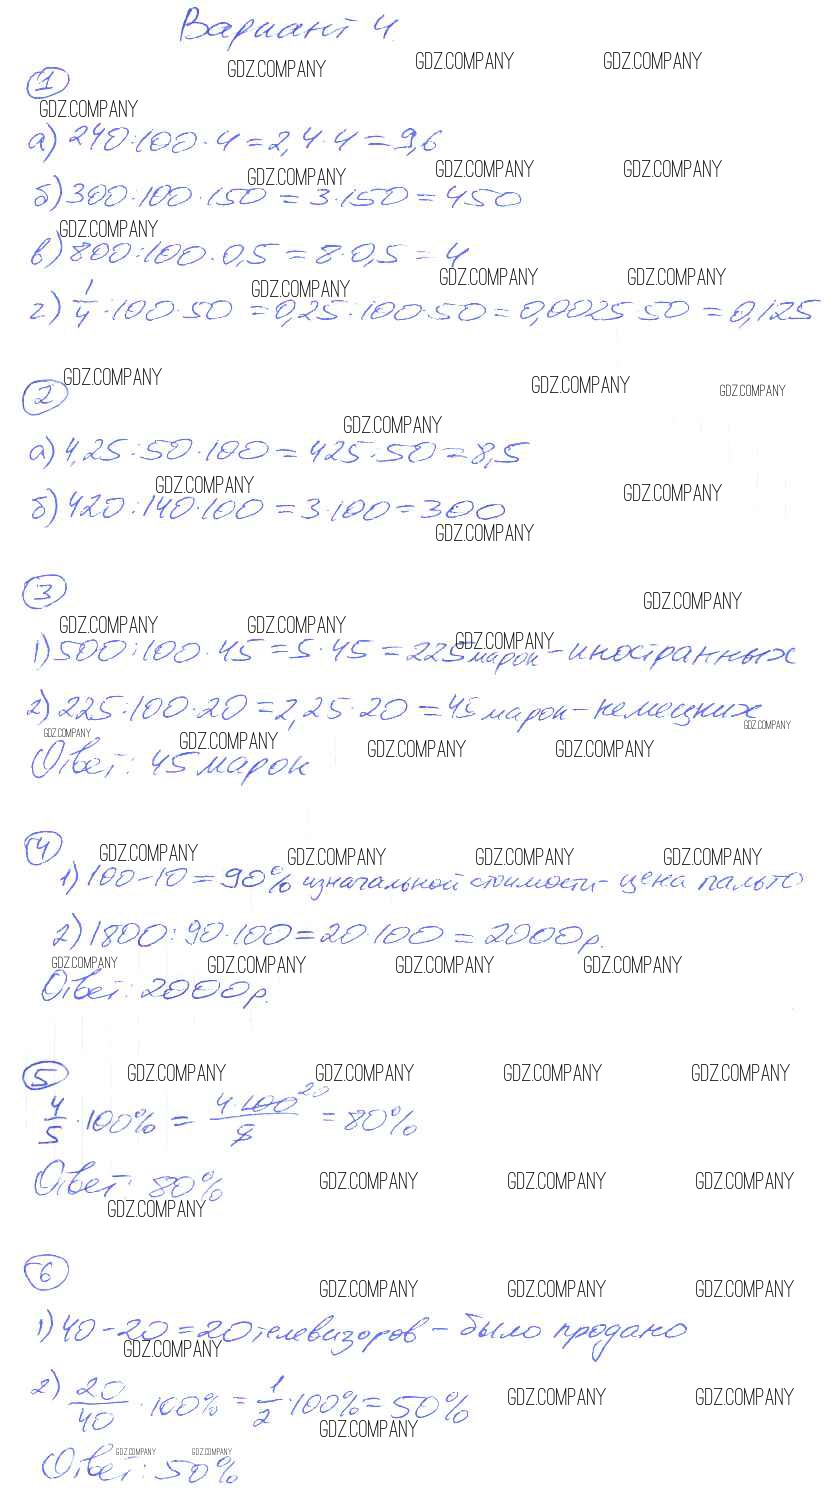 Вариант 4.
GDZ.COMPANY GDZ.COMPANY GDZ.COMPANY
1
GDZ.COMPANY
а) 240:100·4=2,4·4=9,6
GDZ.COMPANY GDZ.COMPANY GDZ.COMPANY
б) 300:100·150=3·150=450
GDZ.COMPANY
в) 800:100·0,5=8·0,5=4
GDZ.COMPANY GDZ.COMPANY GDZ.COMPANY
г) 1/4:100·50=0,25:100·50=0,0025·50=0,125
GDZ.COMPANY GDZ.COMPANY GDZ.COMPANY
2
GDZ.COMPANY
а) 4,25:50·100=425:50=8,5
GDZ.COMPANY GDZ.COMPANY
б) 420:140·100=3·100=300
GDZ.COMPANY
3
GDZ.COMPANY
GDZ.COMPANY GDZ.COMPANY GDZ.COMPANY
1) 500:100·45=5·45=225 марок - иностранных
2) 225:100·20=2,25·20=45 марок - немецких
GDZ.COMPANY GDZ.COMPANY GDZ.COMPANY GDZ.COMPANY GDZ.COMPANY
Ответ: 45 марок
4
GDZ.COMPANY GDZ.COMPANY GDZ.COMPANY GDZ.COMPANY
1) 100-10=90% изначальной стоимости - цена пальто
2) 1800:90·100=20·100=2000р.
GDZ.COMPANY GDZ.COMPANY GDZ.COMPANY GDZ.COMPANY
Ответ: 2000р.
5
GDZ.COMPANY GDZ.COMPANY GDZ.COMPANY GDZ.COMPANY
4/5·100%=4·100 20/5=80%
Ответ: 80%
GDZ.COMPANY GDZ.COMPANY GDZ.COMPANY
GDZ.COMPANY
6
GDZ.COMPANY GDZ.COMPANY GDZ.COMPANY
1) 40-20=20 телевизоров - было продано
GDZ.COMPANY
2) 20/40·100%=1/2·100%=50%
GDZ.COMPANY GDZ.COMPANY
GDZ.COMPANY
GDZ.COMPANY GDZ.COMPANY
Ответ: 50%